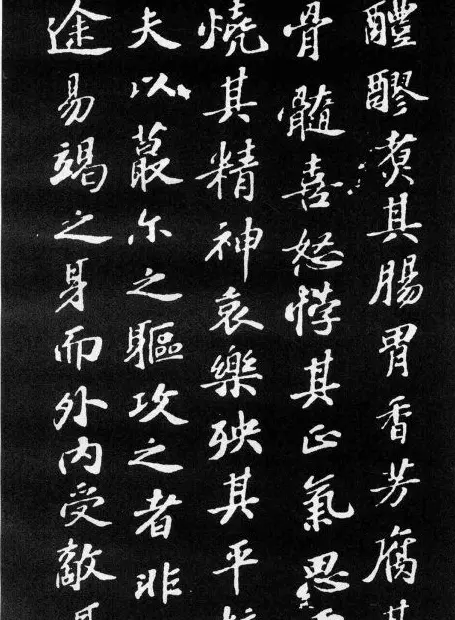 醴醪煮其腸胃香芳腐其
骨髓喜怒悖其正氣思
燒其精神哀樂殃其平
夫以蕞尒之軀攻之者非
途易竭之身而外内受敵